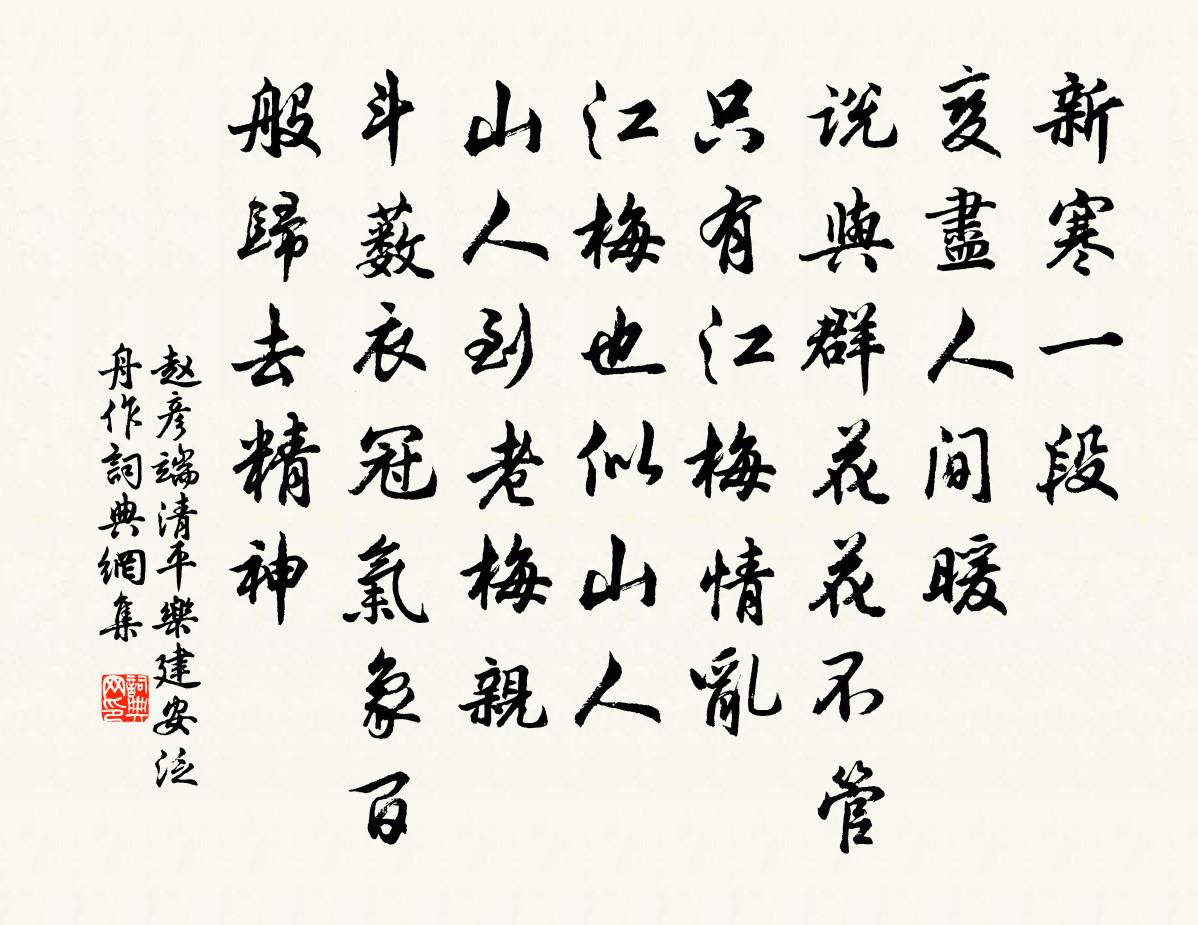 新寒一段
变盡人间暖
说與群花花不管
只有江梅情亂
江梅也似山人
山人到老梅親
斗薮衣冠氣象百
般歸去精神
赵彦端清平樂建安泛
舟作詞典網集
詞典
网印